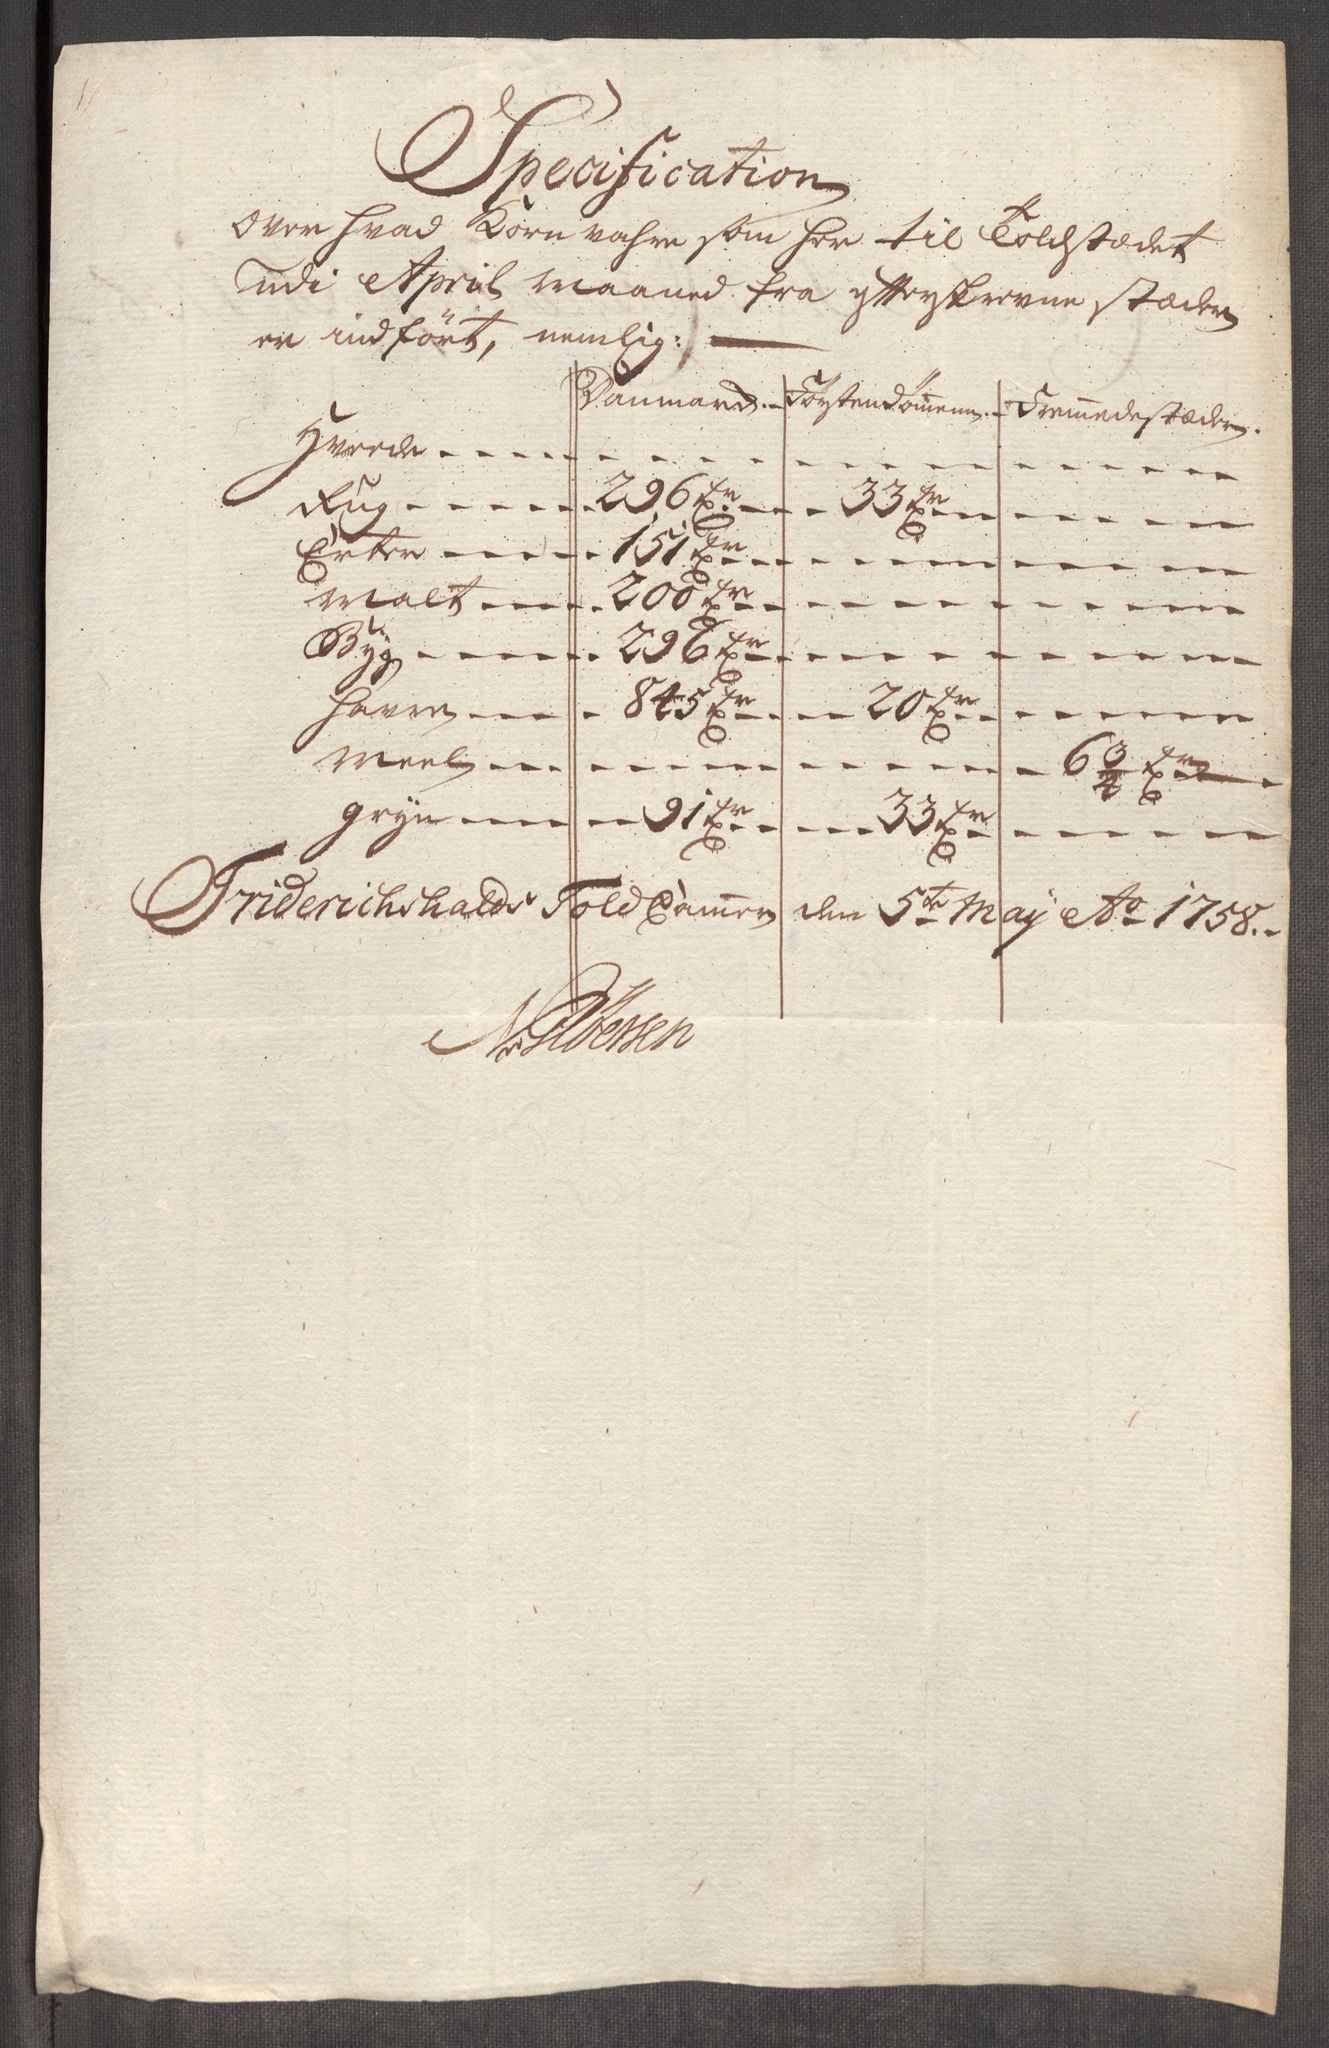 Specification
Over hvad Korn vahre som her til Toldstædet
udi April Maaned fra ytterskrevne stæder
er indført, nemlig:
Danmarck. Førstendømmene. Fremmede stæder.
Hvede
Rug 296 Tr 33 Tr
Erter 151 Tr
Malt 200 Tr
Byg 296 Tr
Havre 845 Tr 20 Tr
Meel 6 3/4 Tr
Gryn 91 Tr 33 Tr
Friderichshalds Told Camer den 5te Maij Ao 1758.